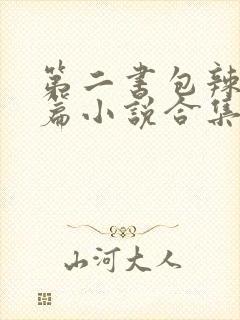 第二书包辣
篇小说合集
山河大人